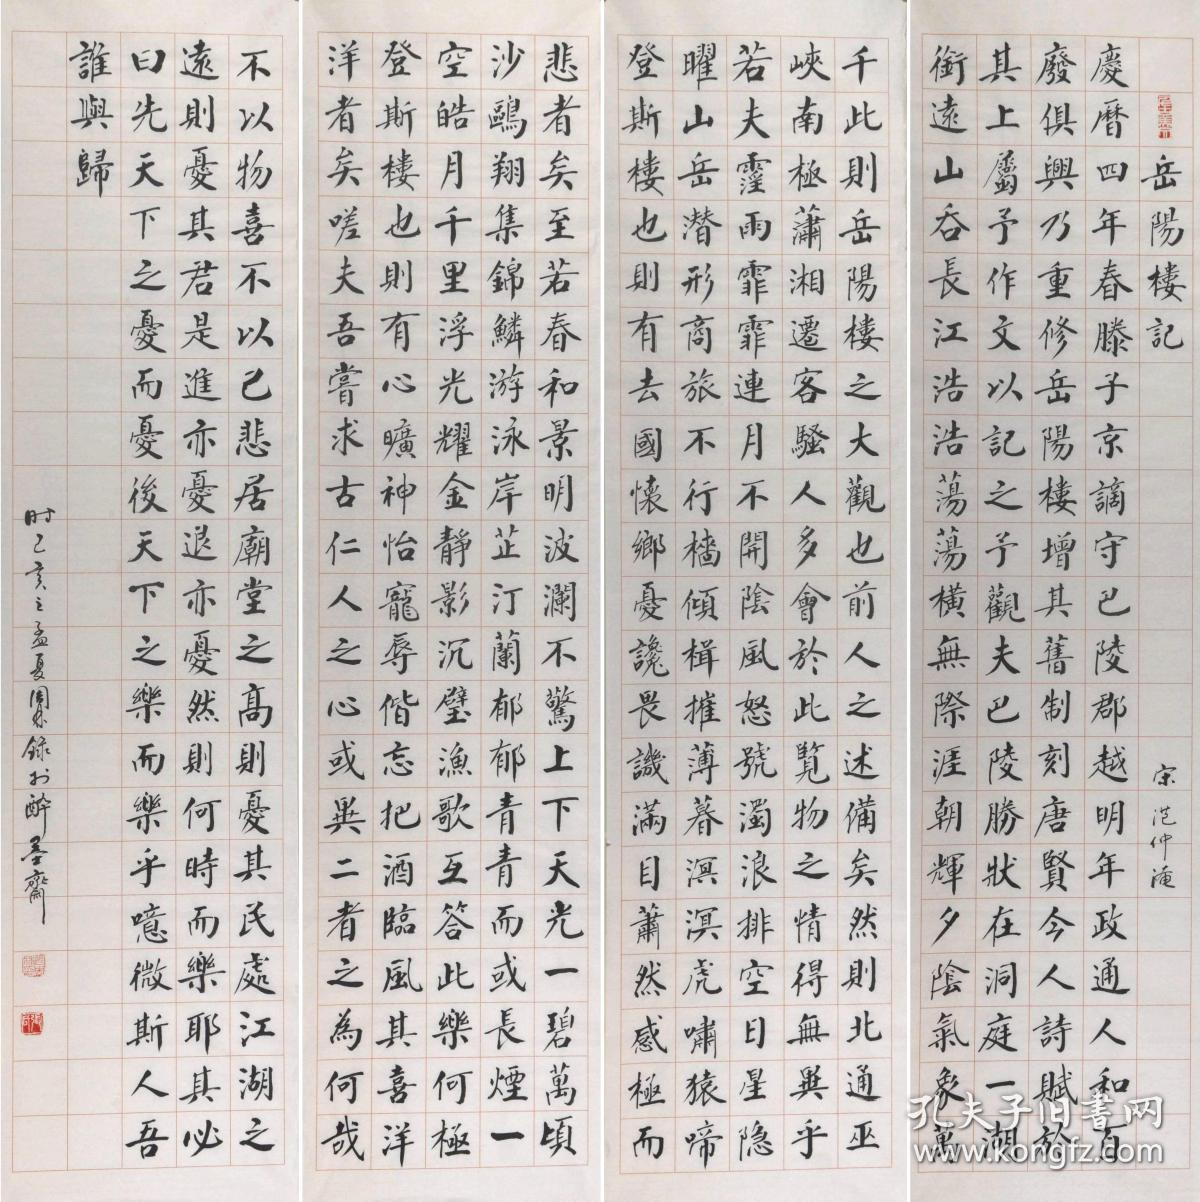 岳陽樓記
宋 范仲淹
慶曆四年春滕子京謫守巴陵郡越明年政通人和百
廢俱興乃重修岳陽樓增其舊制刻唐賢今人詩賦於
其上屬予作文以記之予觀夫巴陵勝狀在洞庭一湖
銜遠山吞長江浩浩蕩蕩橫無際涯朝輝夕陰氣象萬
千此則岳陽樓之大觀也前人之述備矣然則北通巫
峽南極瀟湘遷客騷人多會於此覽物之情得無異乎
若夫霪雨霏霏連月不開陰風怒號濁浪排空日星隱
曜山岳潛形商旅不行檣傾楫摧薄暮溟溟虎嘯猿啼
登斯樓也則有去國懷鄉憂讒畏譏滿目蕭然感極而
悲者矣至若春和景明波瀾不驚上下天光一碧萬頃
沙鷗翔集錦鱗游泳岸芷汀蘭郁郁青青而或長煙一
空皓月千里浮光耀金靜影沉璧漁歌互答此樂何極
登斯樓也則有心曠神怡寵辱偕忘把酒臨風其喜洋
洋者矣嗟夫吾嘗求古仁人之心或異二者之為何哉
不以物喜不以己悲居廟堂之高則憂其民處江湖之
遠則憂其君是進亦憂退亦憂然則何時而樂耶其必
曰先天下之憂而憂後天下之樂而樂乎噫微斯人吾
誰與歸
时己亥之孟夏錄於醉墨齋
孔夫子旧书网
www.kongfz.com